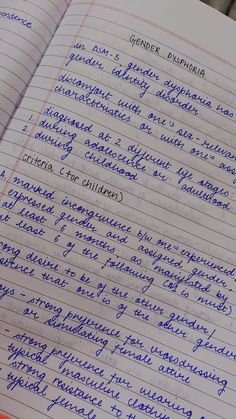 endence
GENDER DYSPHORIA
in DSM-5, gender dysphoria has
gender identity disorder
discomfort with one's sex-relevan
characteristics or with one's ass
diagnosed at 2 different life stages:
1. during adolescence or adulthood
2. during childhood
criteria (for children)
A. marked incongruence b/w one's experienced
expressed gender and assigned gender,
at least 6 months as manifested by
at least 6 of the following (A1 is must)
ong desire to be of the other gender/
stence that one is of the other gender
ys - strong preference for crossdressing
or simulating female attire
- strong preference for wearing
typical masculine clothing
strong resistance to
typical female